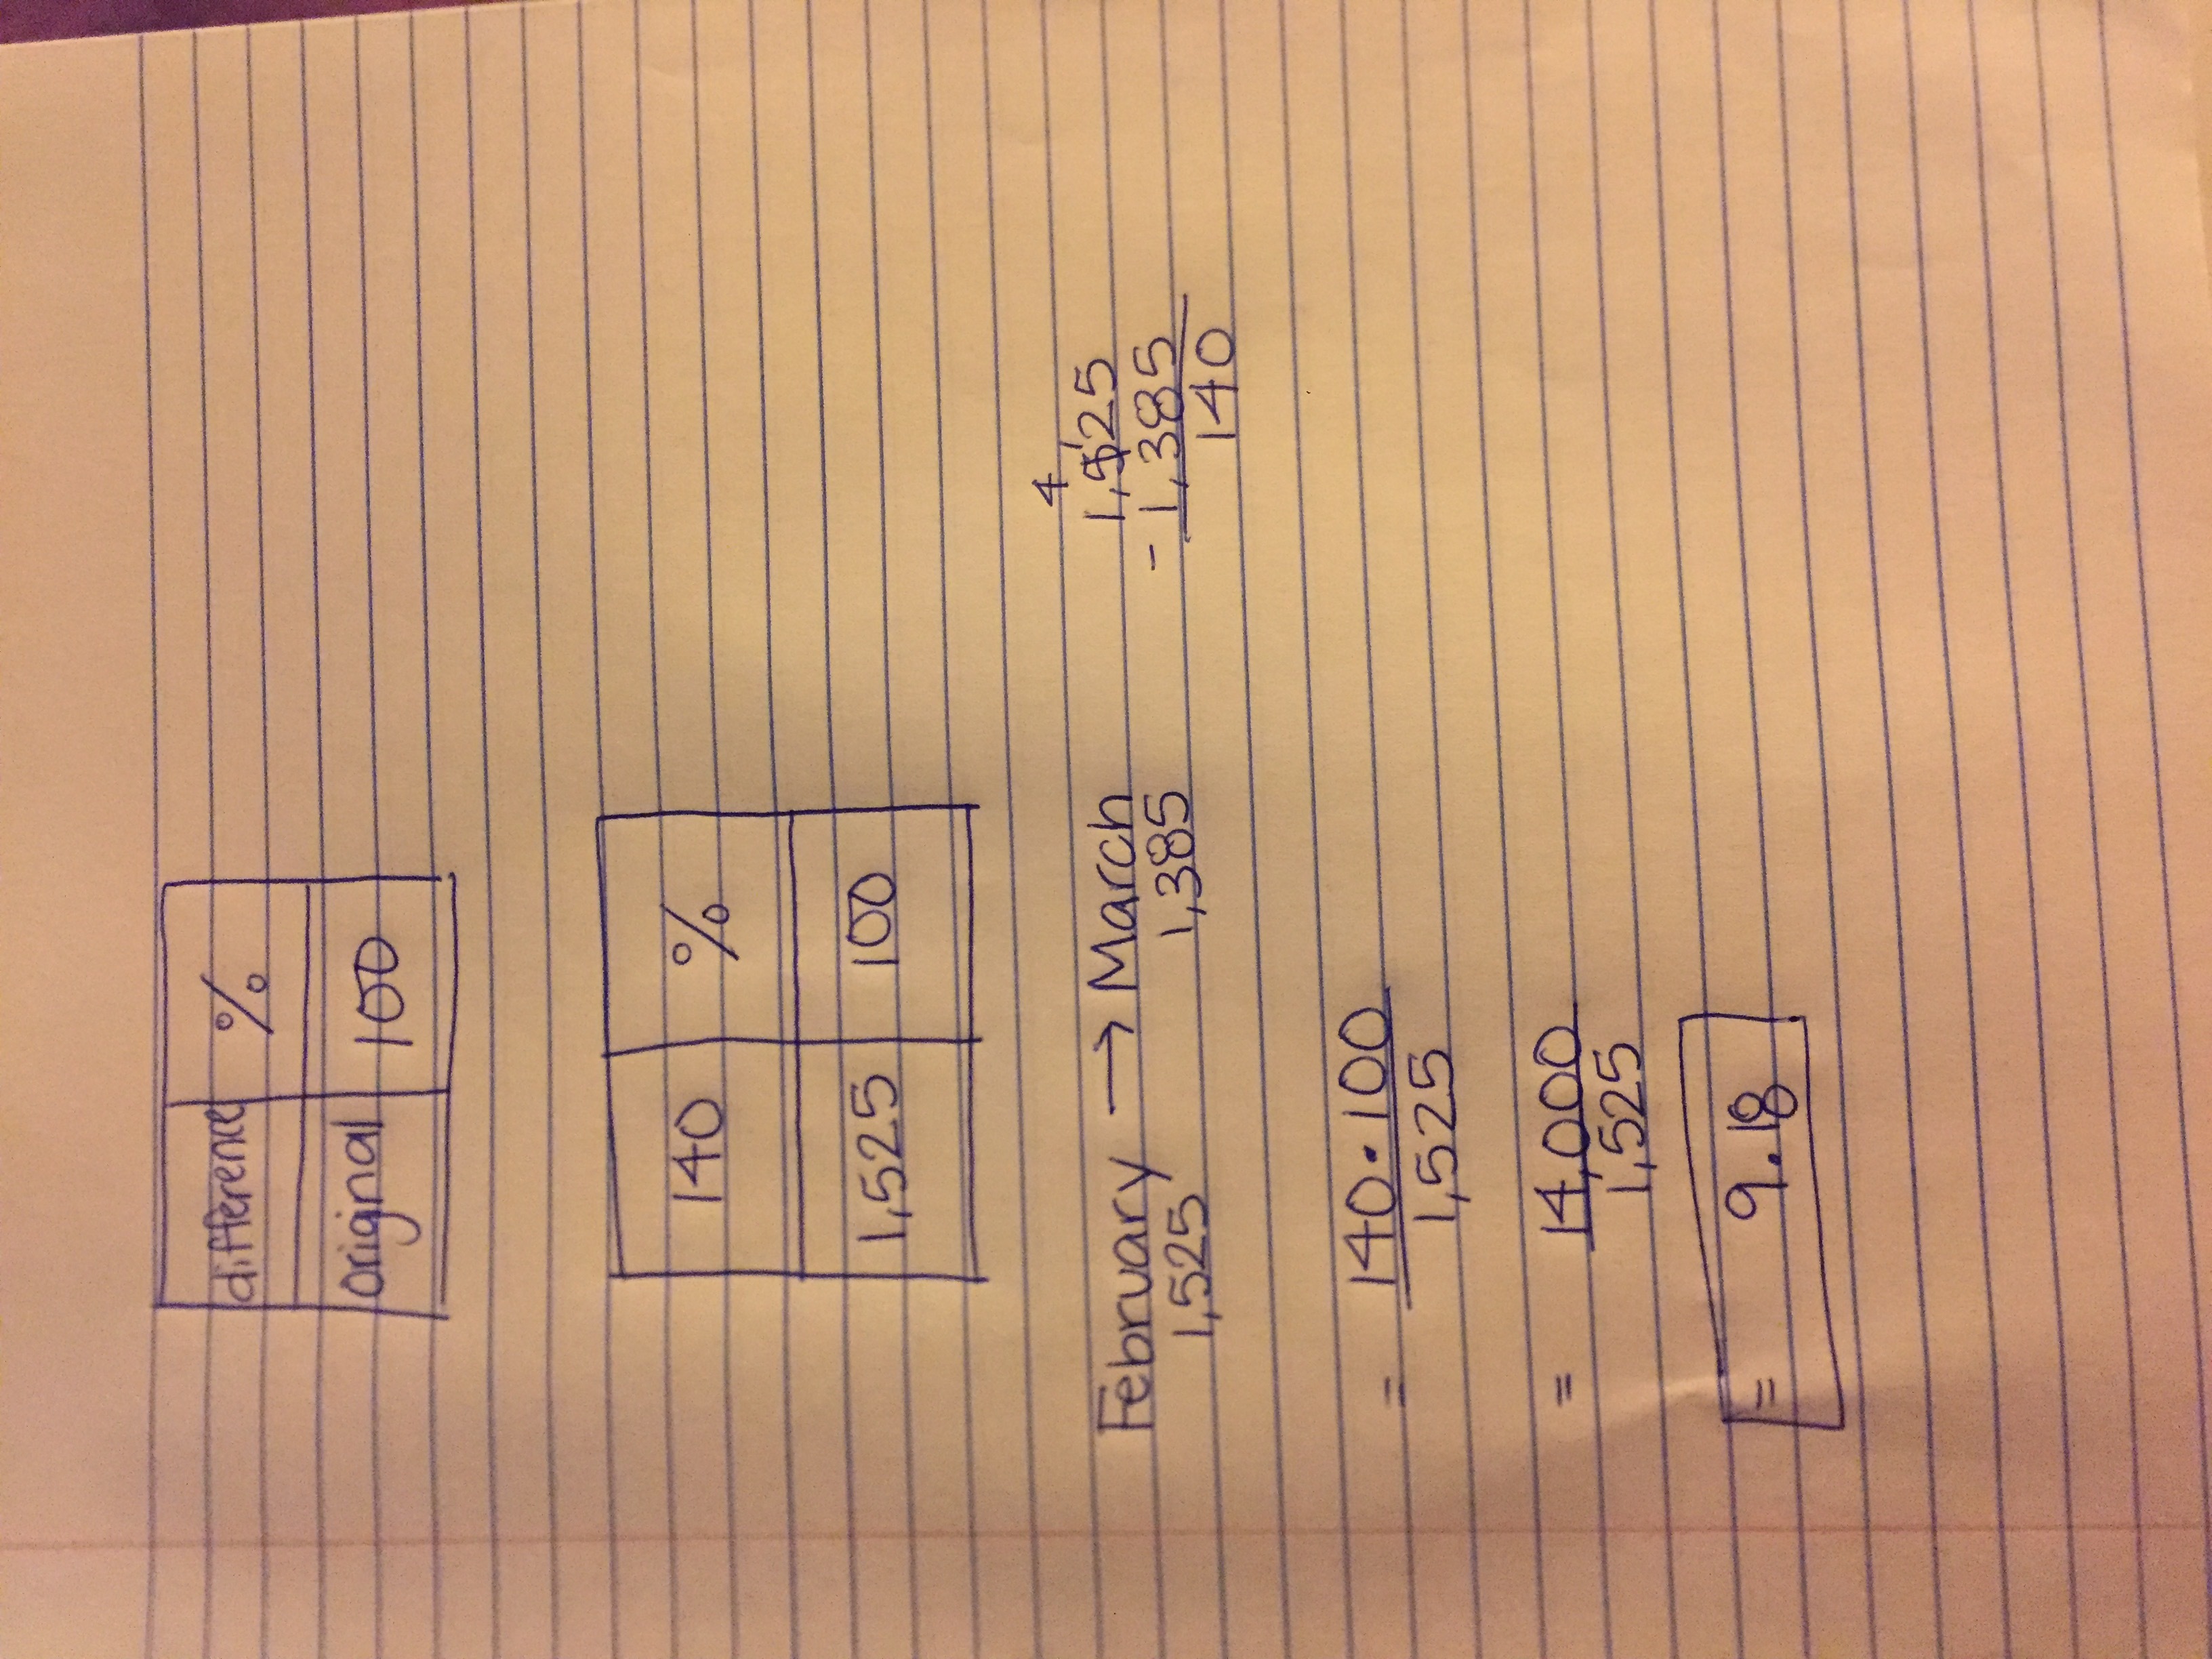 difference %
original 100
140 %
1,525 100
4
February → March 1,5'25
1,525 1,385 - 1,385
140
= 140 • 100
1,525
= 14,000
1,525
= 9.18